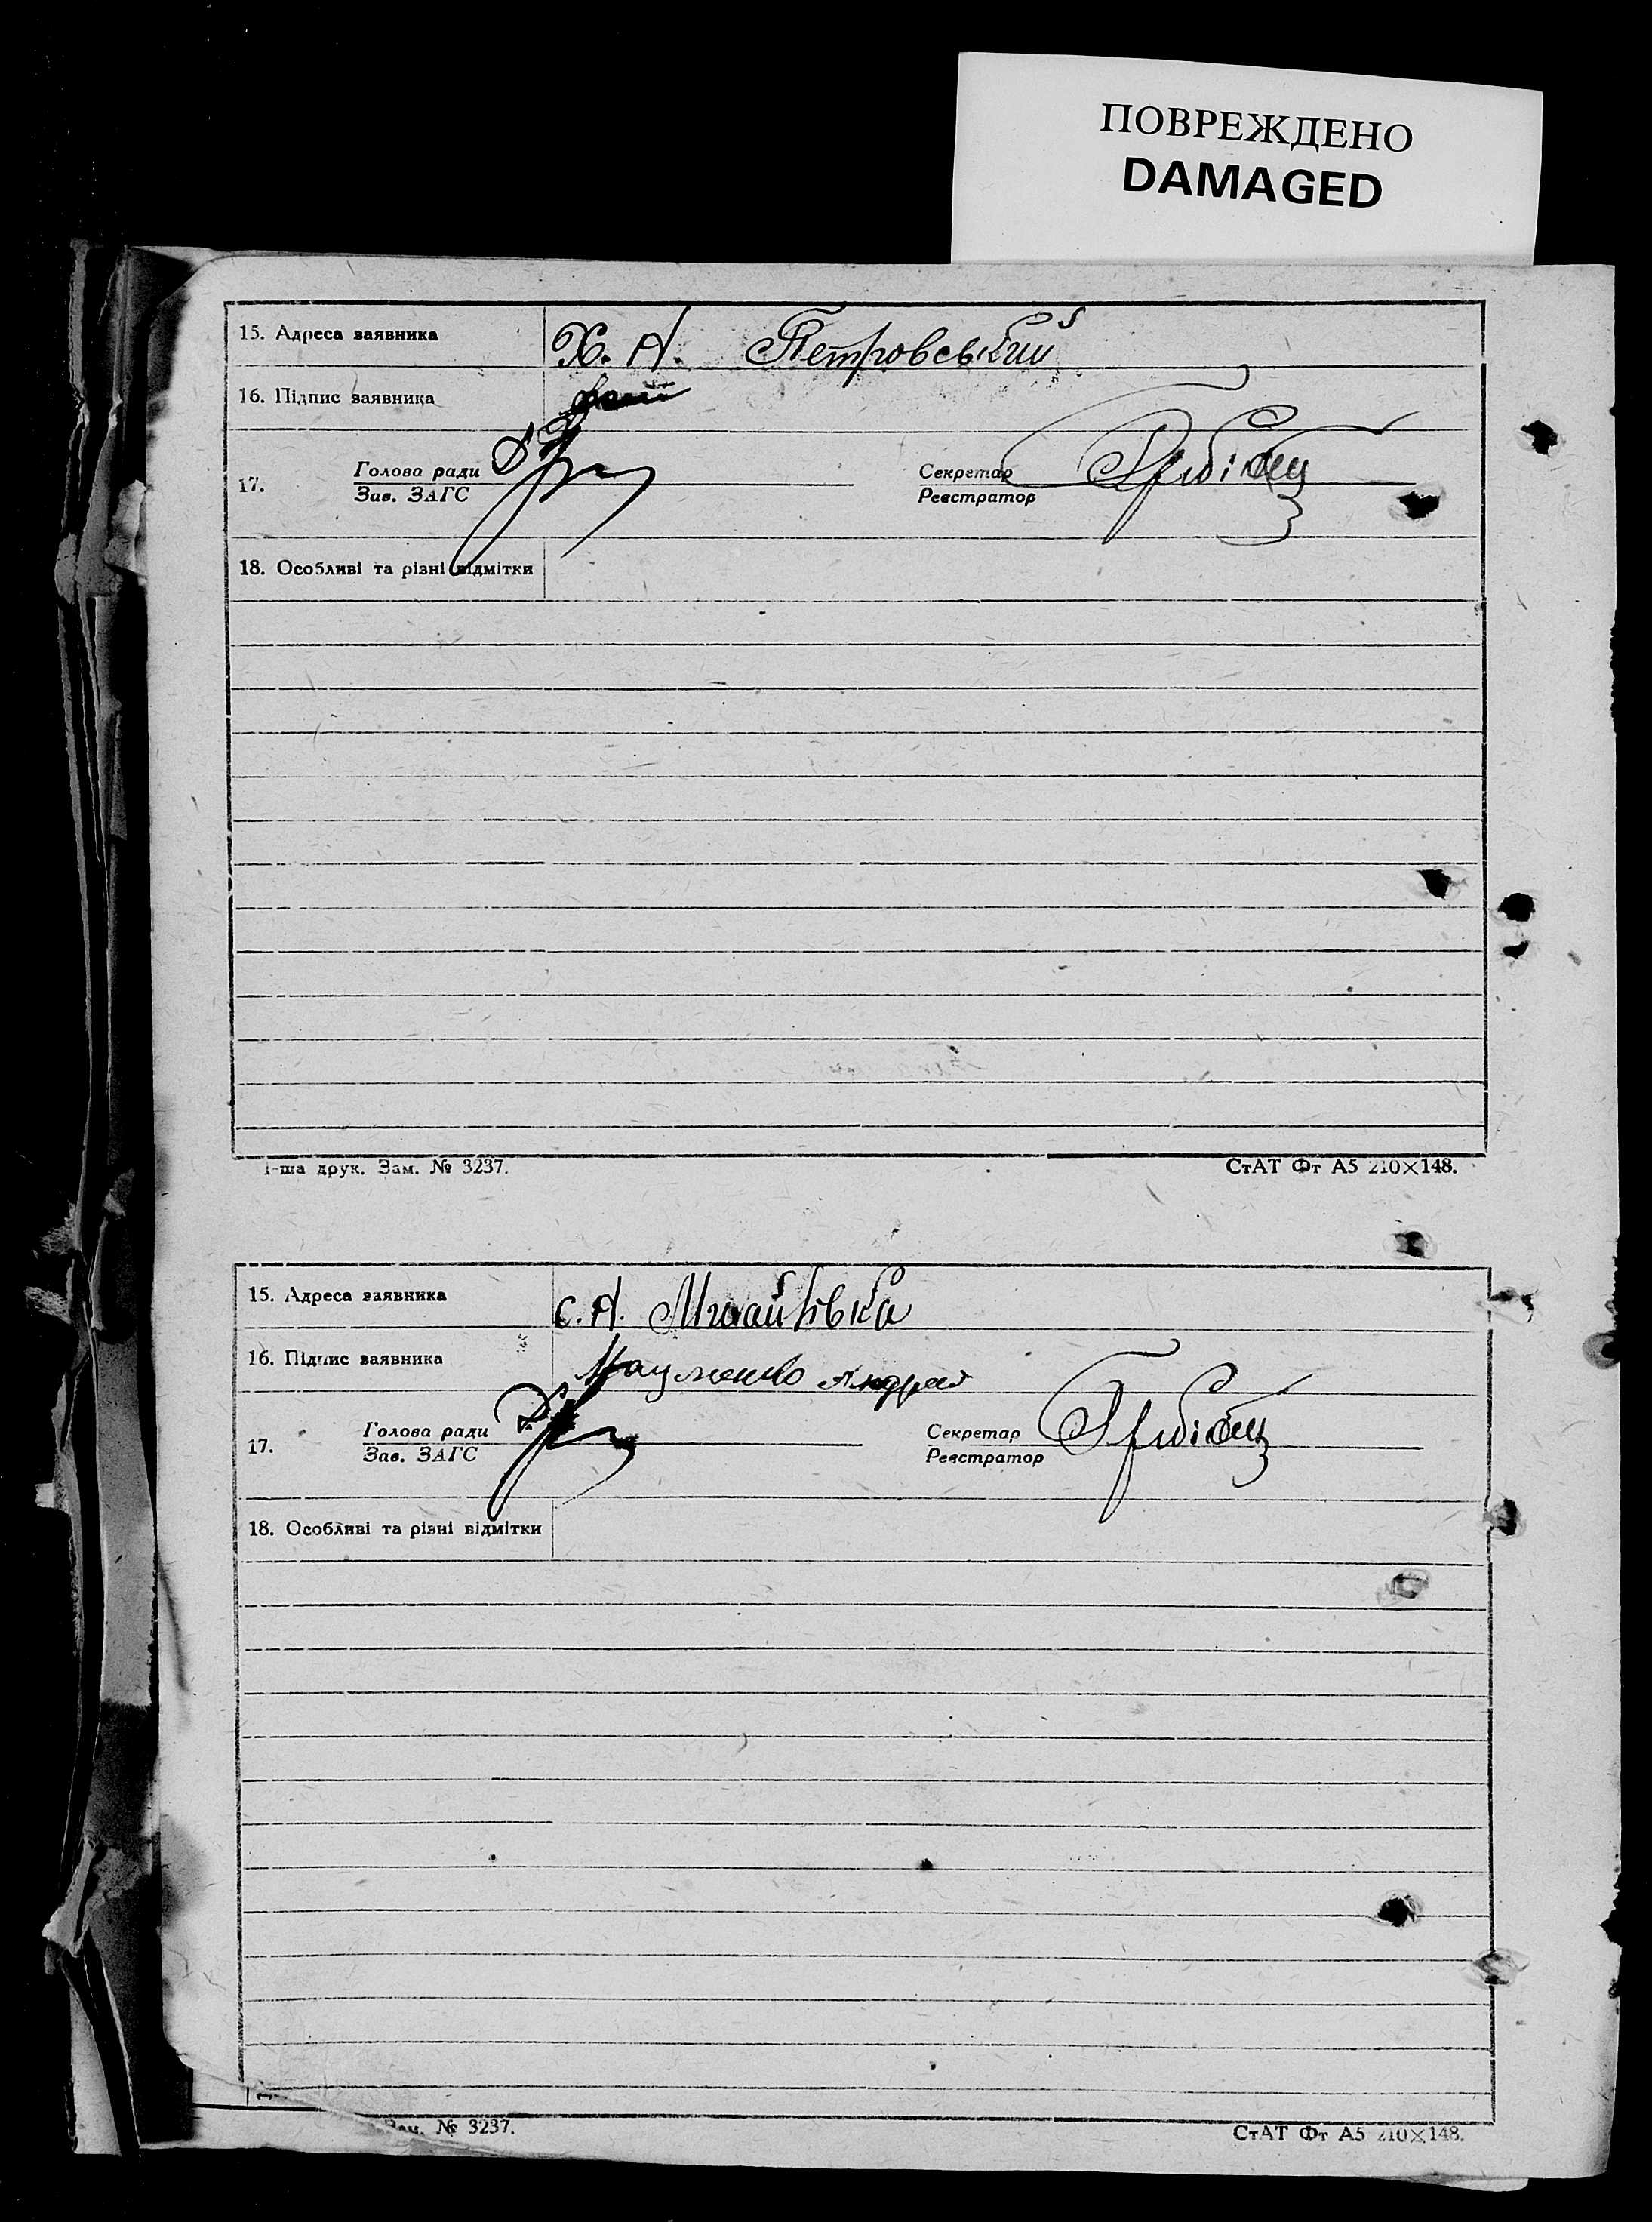 ПОВРЕЖДЕНО
DAMAGED
15. Адреса заявника Х. А. Петровський
16. Підпис заявника
17. Голова ради Секретар
Зав. ЗАГС Реєстратор
18. Особливі та різні відмітки
1-ша друк. Зам. № 3237. СтАТ Фт А5 210×148.
15. Адреса заявника с. А.
16. Підпис заявника Науменко Андрей
17. Голова ради Секретар
Зав. ЗАГС Реєстратор
18. Особливі та різні відмітки
Зам. № 3237. СтАТ Фт А5 210×148.